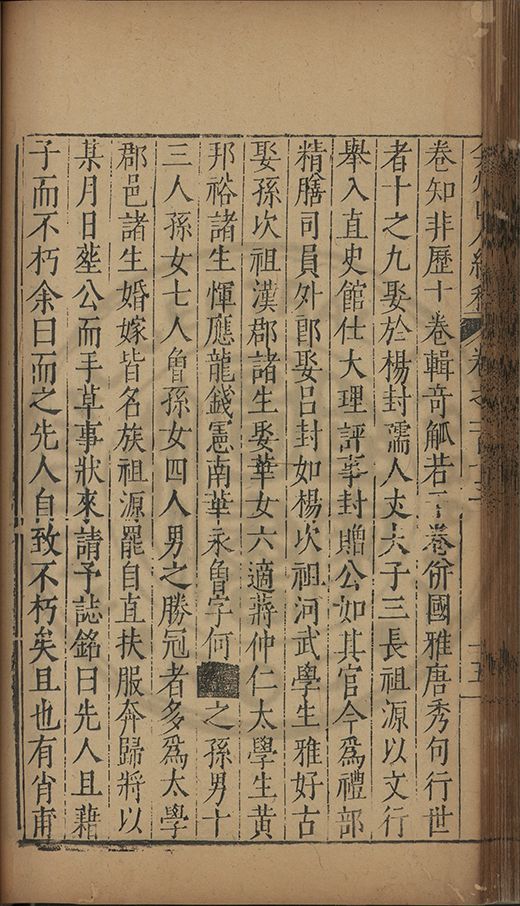 弇州山人續稿 卷之一百十三 十五
卷知非歷十卷輯奇觚若干卷併國雅唐秀句行世
者十之九娶於楊封孺人丈夫子三長祖源以文行
舉入直史館仕大理評事封贈公如其官今為禮部
精膳司員外郎娶呂封如楊次祖河武學生雅好古
娶孫次祖漢郡諸生娶華女六適蔣仲仁太學生黃
邦裕諸生惲應龍錢憲南華永魯宇何 之孫男十
三人孫女七人曾孫女四人男之勝冠者多為太學
郡邑諸生婚嫁皆名族祖源罷自直扶服奔歸將以
某月日塟公而手草事狀來請予誌銘曰先人且藉
子而不朽余曰而之先人自致不朽矣且也有肖甫